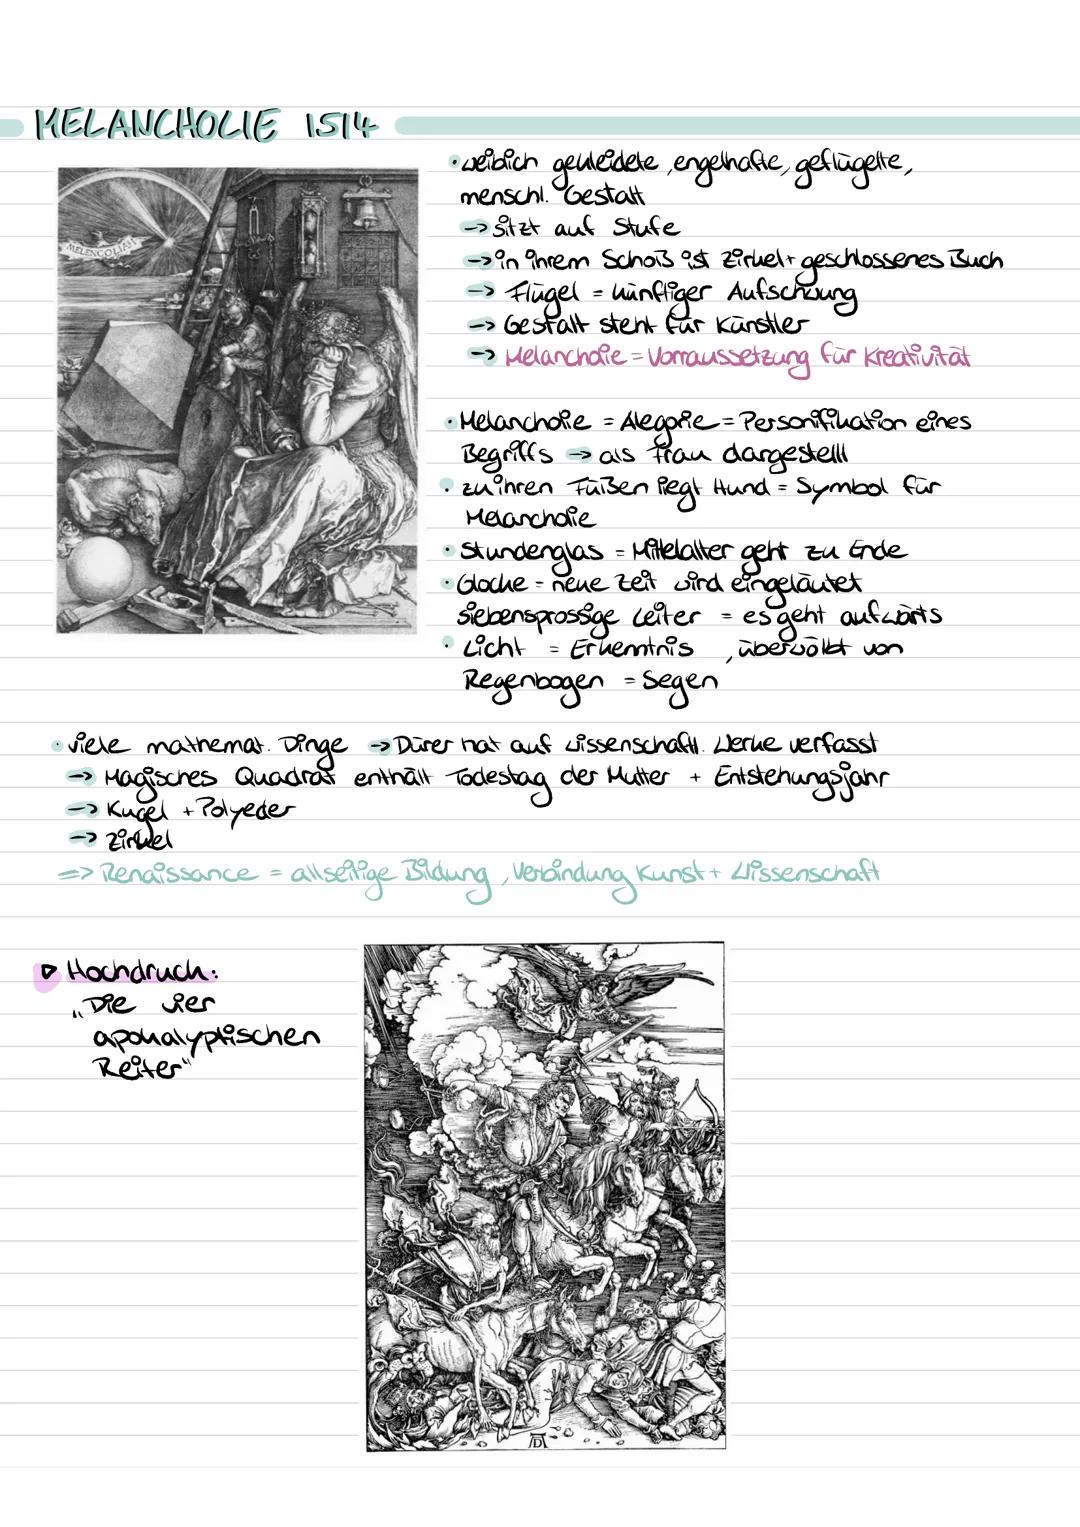 MELANCHOLIE 1514
• weiblich gekleidete, engelhafte, geflügelte,
menschl. Gestalt
→ sitzt auf Stufe
→ in ihrem Schoß ist Zirkel + geschlossenes Buch
→ Flügel = künftiger Aufschwung
→ Gestalt steht für Künstler
→ Melancholie = Vorraussetzung für Kreativität
MELENCOLIA I
• Melancholie = Alegorie = Personifikation eines
Begriffs → als Frau dargestellt
• zu ihren Füßen liegt Hund = Symbol für
Melancholie
• Stundenglas = Mittelalter geht zu Ende
• Glocke = neue Zeit wird eingeläutet
siebensprossige Leiter = es geht aufwärts
• Licht = Erkenntnis, überwölbt von
Regenbogen = Segen
• viele mathemat. Dinge → Dürer hat auf wissenschaftl. Werke verfasst
→ Magisches Quadrat enthält Todestag der Mutter + Entstehungsjahr
→ Kugel + Polyeder
→ Zirkel
=> Renaissance = allseitige Bildung, Verbindung Kunst + Wissenschaft
▷ Hochdruck:
„Die vier
apokalyptischen
Reiter"
AD